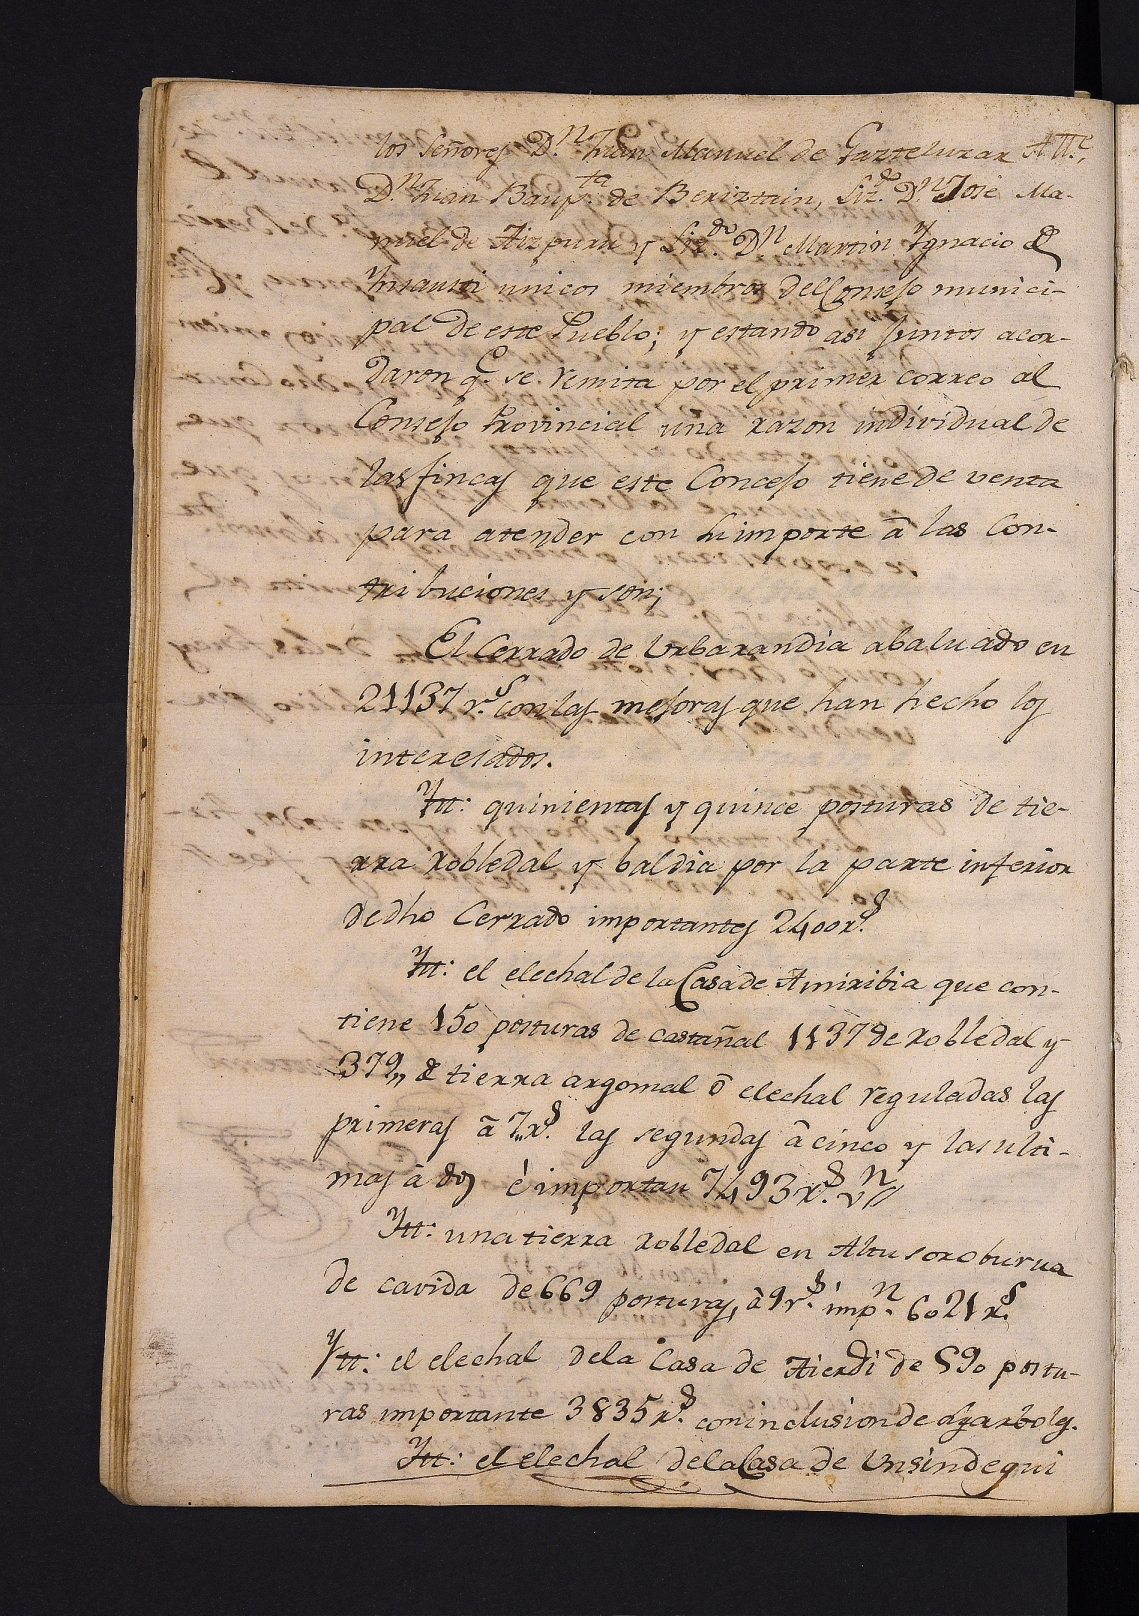 los Señores D.n Juan Manuel de Gaztelurar Att.e,
D.n Juan Baup.ta de Beriztain, Liz.do D.n José Ma-
nuel de Aizpuru y Liz.do D.n Martin Ygnacio de
Ynsausti unicos miembros del Consejo munici-
pal de este Pueblo; y estando asi juntos acor-
daron q.e se remita por el primer correo al
Consejo Provincial una razon individual de
las fincas que este Concejo tiene de venta
para atender con su importe â las Con-
tribuciones y son;
El Cerrado de Urbarandia abaluado en
21137 r.s con las mejoras que han hecho los
interesados.
Ytt: quinientas y quince posturas de tie-
rra robledal y baldia por la parte inferior
de dho Cerrado importantes 2400 r.s
Ytt: el elechal de la Casa de Amiribia que con-
tiene 150 posturas de castañal 1137 de robledal y
379,, de tierra argomal ô elechal reguladas las
primeras â 7,, r.s las segundas â cinco y las ulti-
mas â dos è importan 7493 r.s v.n
Ytt: una tierra robledal en Altusoroburua
de cavida de 669 posturas, â 9 r.s imp.n 6021 r.s
Ytt: el elechal de la Casa de Aierdi de 590 postu-
ras importante 3835 r.s con inclusion de Arbols.
Ytt: el elechal de la Casa de Unsindegui